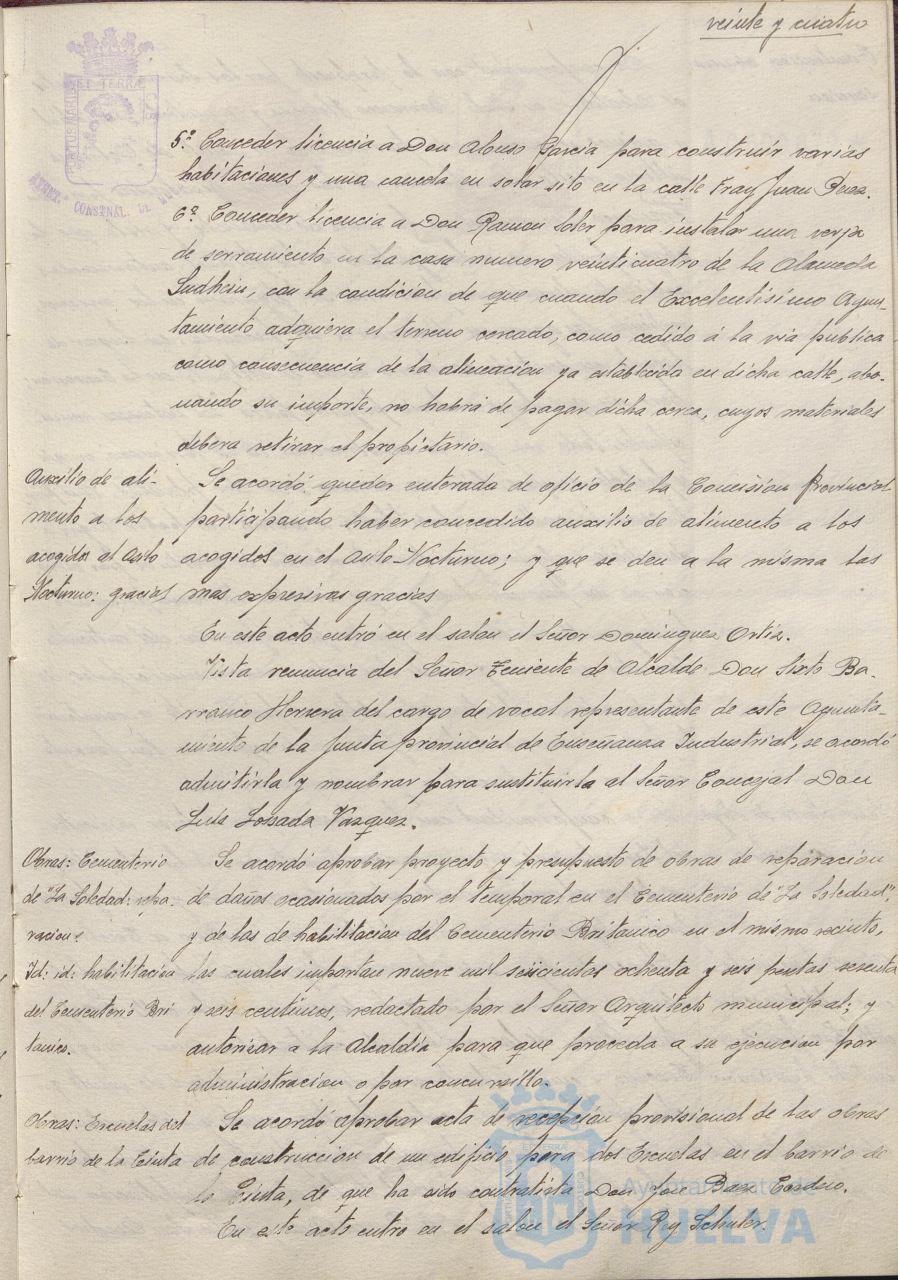 veinte y cuatro
5º Conceder licencia a Don Alonso Garcia para construir varias
habitaciones y una cuadra en solar sito en la calle Fray Juan Perez.
6º Conceder licencia a Don Ramon Soler para instalar una verja
de serramiento en la casa numero veinticuatro de la Alameda
Sudheim, con la condicion de que cuando el Excelentisimo Ayun-
tamiento adquiera el terreno cercado, como cedido á la via publica
como consecuencia de la alineacion ya establecida en dicha calle, abo-
nando su importe, no habrá de pagar dicha cerca, cuyos materiales
debera retirar el propietario.
Auxilio de ali-
mento a los
acogidos al Asilo
Nocturno: gracias
Se acordó quedar enterada de oficio de la Comision Provincial
participando haber concedido auxilio de alimento a los
acogidos en el Asilo Nocturno; y que se den a la misma las
mas expresivas gracias
En este acto entró en el salon el Señor Dominguez Ortiz.
Vista renuncia del Señor Teniente de Alcalde Don Sixto Ba-
rranco Herrera del cargo de vocal representante de este Ayunta-
miento de la Junta provincial de Enseñanza Industrial, se acordó
admitirla y nombrar para sustituirla al Señor Concejal Don
Luis Losada Vazquez.
Obras: Cementerio
de "La Soledad: repa-
racion.
Id: id: habilitacion
del Cementerio Bri
tanico.
Se acordó aprobar proyecto y presupuesto de obras de reparacion
de daños ocasionados por el temporal en el Cementerio de "La Soledad",
y de las de habilitacion del Cementerio Britanico en el mismo recinto,
las cuales importan nueve mil seiscientas ochenta y seis pesetas sesenta
y seis centimos, redactado por el Señor Arquitecto municipal; y
autorizar a la Alcaldía para que proceda a su ejecucion por
administracion o por concursillo.
Obras: Escuelas del
barrio de la Cinta
Se acordó aprobar acta de recepcion provisional de las obras
de construccion de un edificio para dos Escuelas en el barrio de
la Cinta, de que ha sido contratista Don Jose Baez Cordero.
En este acto entro en el salon el Señor Rey Schuler.
Ayuntamiento de
HUELVA